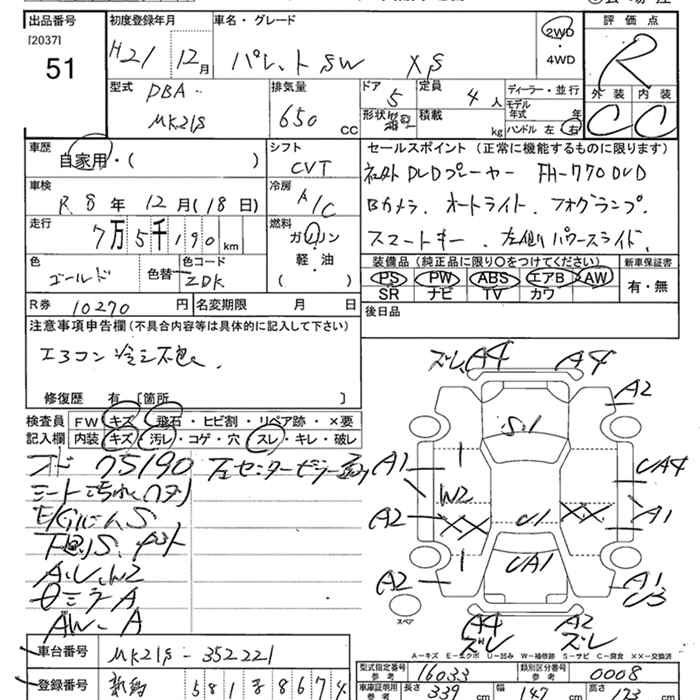 出品番号 初度登録年月 車名・グレード 評価点
[2037] H21 12月 パレットSW XS 2WD・4WD R
51
型式 DBA- 排気量 ドア 5 定員 4人 ディーラー・並行 外装 内装
MK21S 650 CC 形状 積載 kg モデル年式 年 C C
ハンドル 左 右
車歴 シフト セールスポイント(正常に機能するものに限ります)
自家用・( ) CVT 社外DVDプレーヤー FH-770DVD
車検 冷房 Bカメラ、オートライト、フォグランプ、
R8年 12月(18日) A/C スマートキー、左側パワースライド、
走行 燃料
7万5千190km ガソリン 軽・油 ( )
装備品(純正品に限り○をつけてください) 新車保証書
色 色替 色コード PS PW ABS エアB AW 有・無
ゴールド ZDK SR ナビ TV カワ
R券 10270円 名変期限 月 日 後日品
注意事項申告欄(不具合内容等は具体的に記入して下さい)
エアコン冷え不良、
修復歴 有 [箇所 ]
検査員 FW キズ 飛石・ヒビ割・リペア跡・×要
記入欄 内装 キズ 汚レ・コゲ・穴 スレ・キレ・破レ
75190 左センターピラー
AW-A
ズレ A4 A4
A2
S1
A1 UA4
W2
A2 XX U1 XX A1
A2 UA1 A1
U3
スペア
A4 A2
ズレ ズレ
A-キズ E-エクボ U-凹み W-補修跡 S-サビ C-腐食 XX-交換済
車台番号 MK21S-352221
型式指定番号 参考 16033 類別区分番号 参考 0008
登録番号 581 8674
車庫証明用 参考 長さ 339cm 幅 147cm 高さ 173cm